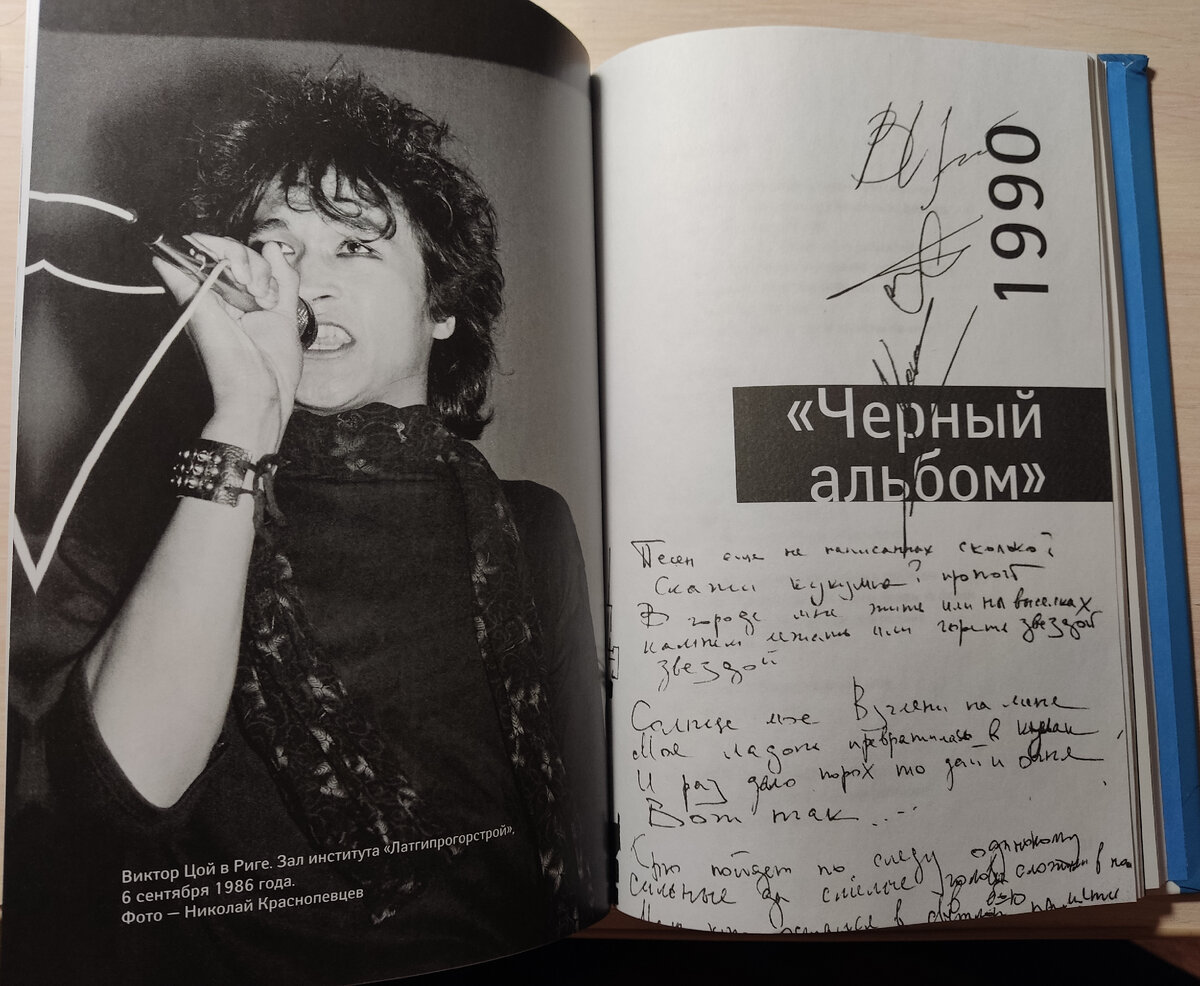 Виктор Цой в Риге. Зал института «Латгипрогорстрой»,
6 сентября 1986 года.
Фото — Николай Краснопевцев
1990
«Черный
альбом»
Песен еще не написанных сколько?
Скажи кукушка? пропой
В городе мне жить или на выселках
камнем лежать или гореть звездой
звездой
Солнце мое Взгляни на меня
Моя ладонь превратилась в кулак
И раз дело порох то дай и огня
Вот так...
Кто пойдет по следу одинокому
Сильные да смелые головы сложили в по